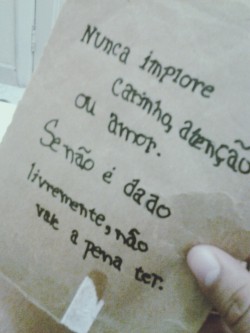 Nunca implore
carinho, atenção
ou amor.
Se não é dado
livremente, não
vale a pena ter.